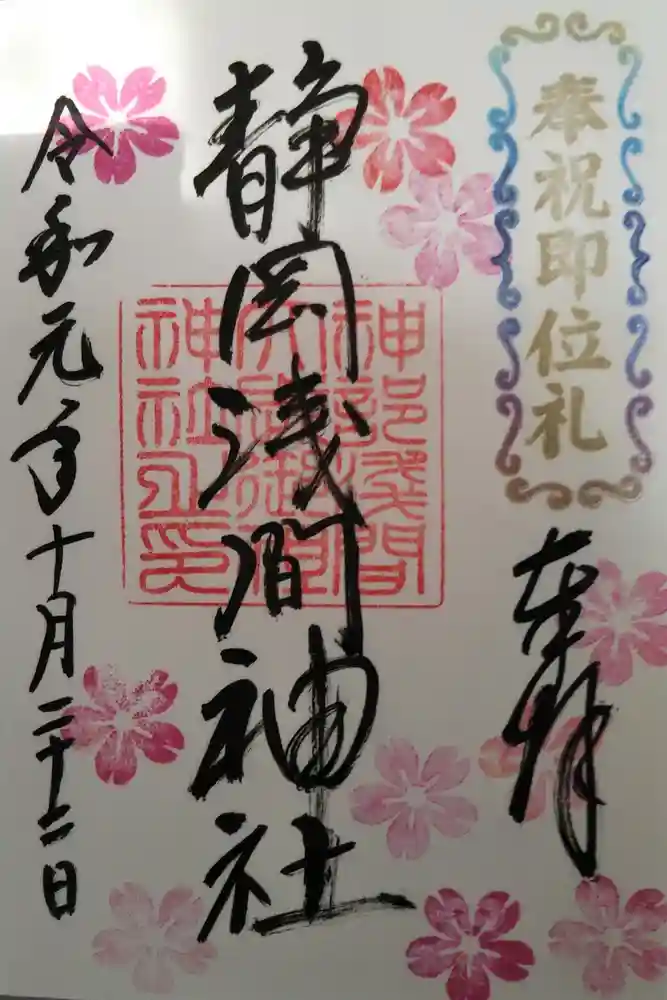 奉祝即位礼
奉拝
静岡浅間神社
神部浅間
大歳御祖
神社之印
令和元年十月二十二日